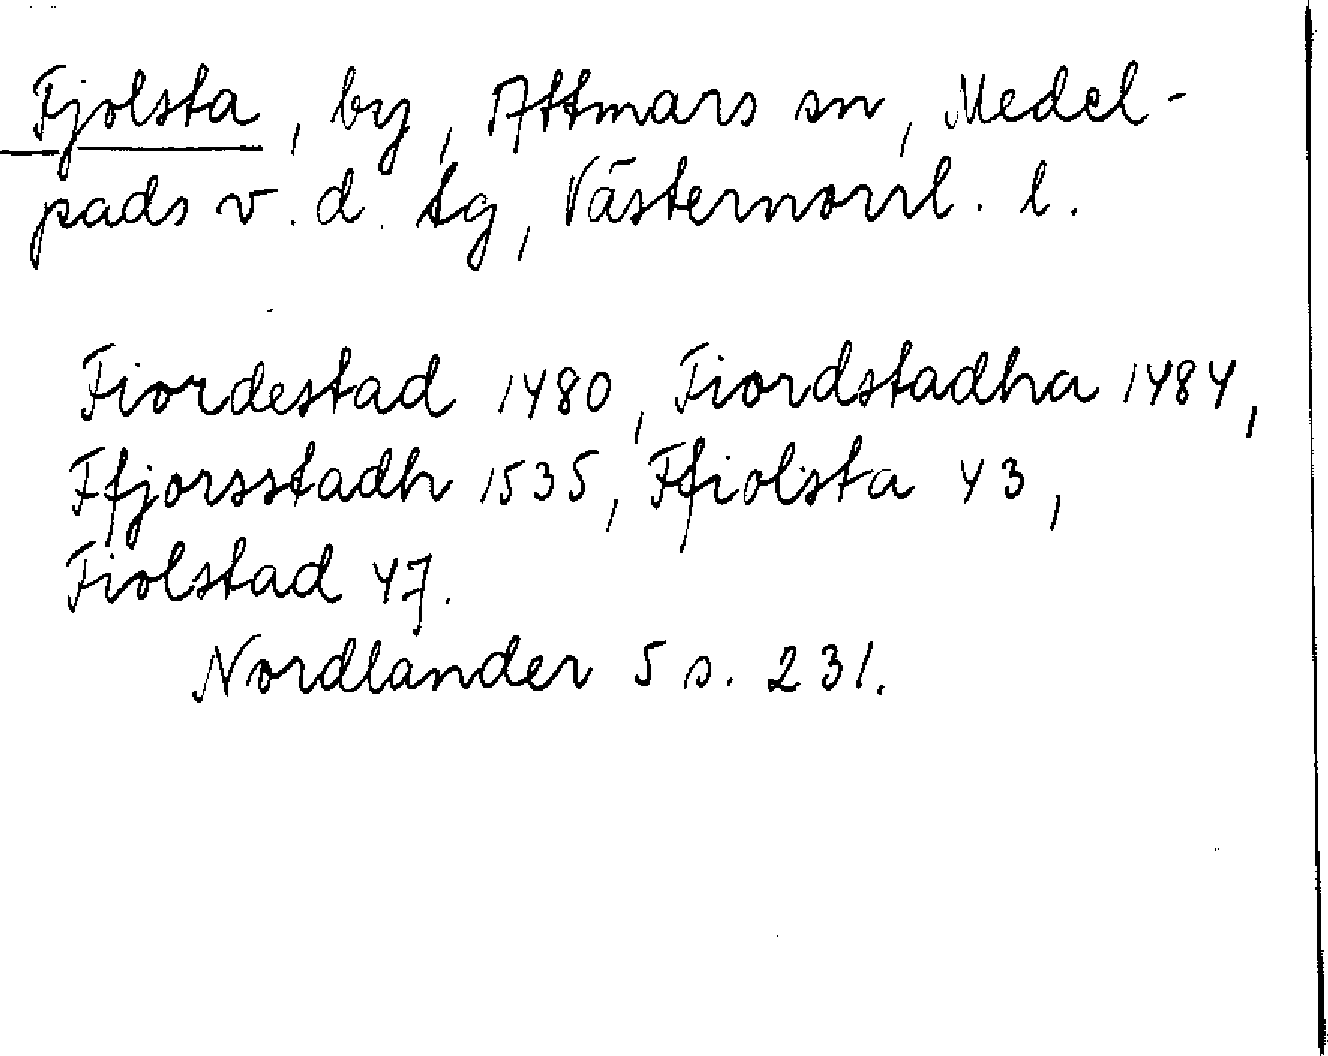 Fjolsta, by, Attmars sn, Medel-
pads v. d. tg, Västernorrl. l.
Fiordestad 1480, Fiordstadha 1484,
Ffjorsstadh 1535, Ffiolsta 43,
Fiolstad 47.
Nordlander 5 s. 231.